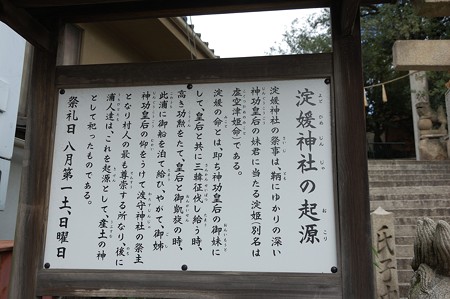 淀媛神社の起源
淀媛神社の祭事は鞆にゆかりの深い
神功皇后の妹君に当たる淀姫（別名は
虚空津姫命）である。
淀媛の命とは、即ち神功皇后の御妹に
して、皇后と共に三韓征伐し給う時、
高き功勲をたて、皇后と御凱旋の時、
此浦に御船を泊て給ひ、やがて、御姉
神功皇后の仰をうけて渡守神社の祭主
となり村人の最も尊崇する所なり、後に
浦人達は、これを起源として、産土の神
として祀ったものである。
祭礼日 八月第一土、日曜日
氏子